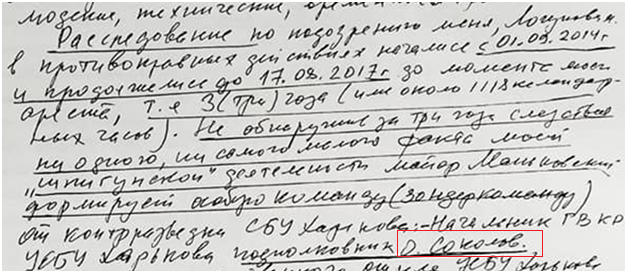 людские, технические,
Расследование по подозрению меня, Логунова
в противоправных действиях начались с 01.09.2014г
и продолжились до 17.08.2017г до момента моего
ареста, т.е 3(три) года (или около 1118 календар-
ных часов). Не обнаружив за три года следствия
ни одного, ни самого малого факта моей
"шпигунской" деятельности майор Машковский
формирует айнзкоманду (зондеркоманду)
от контрразведки СБУ Харькова: - Начальник ГВ КР
УСБУ Харькова подполковник Д. Соколов.
УСБУ Харькова